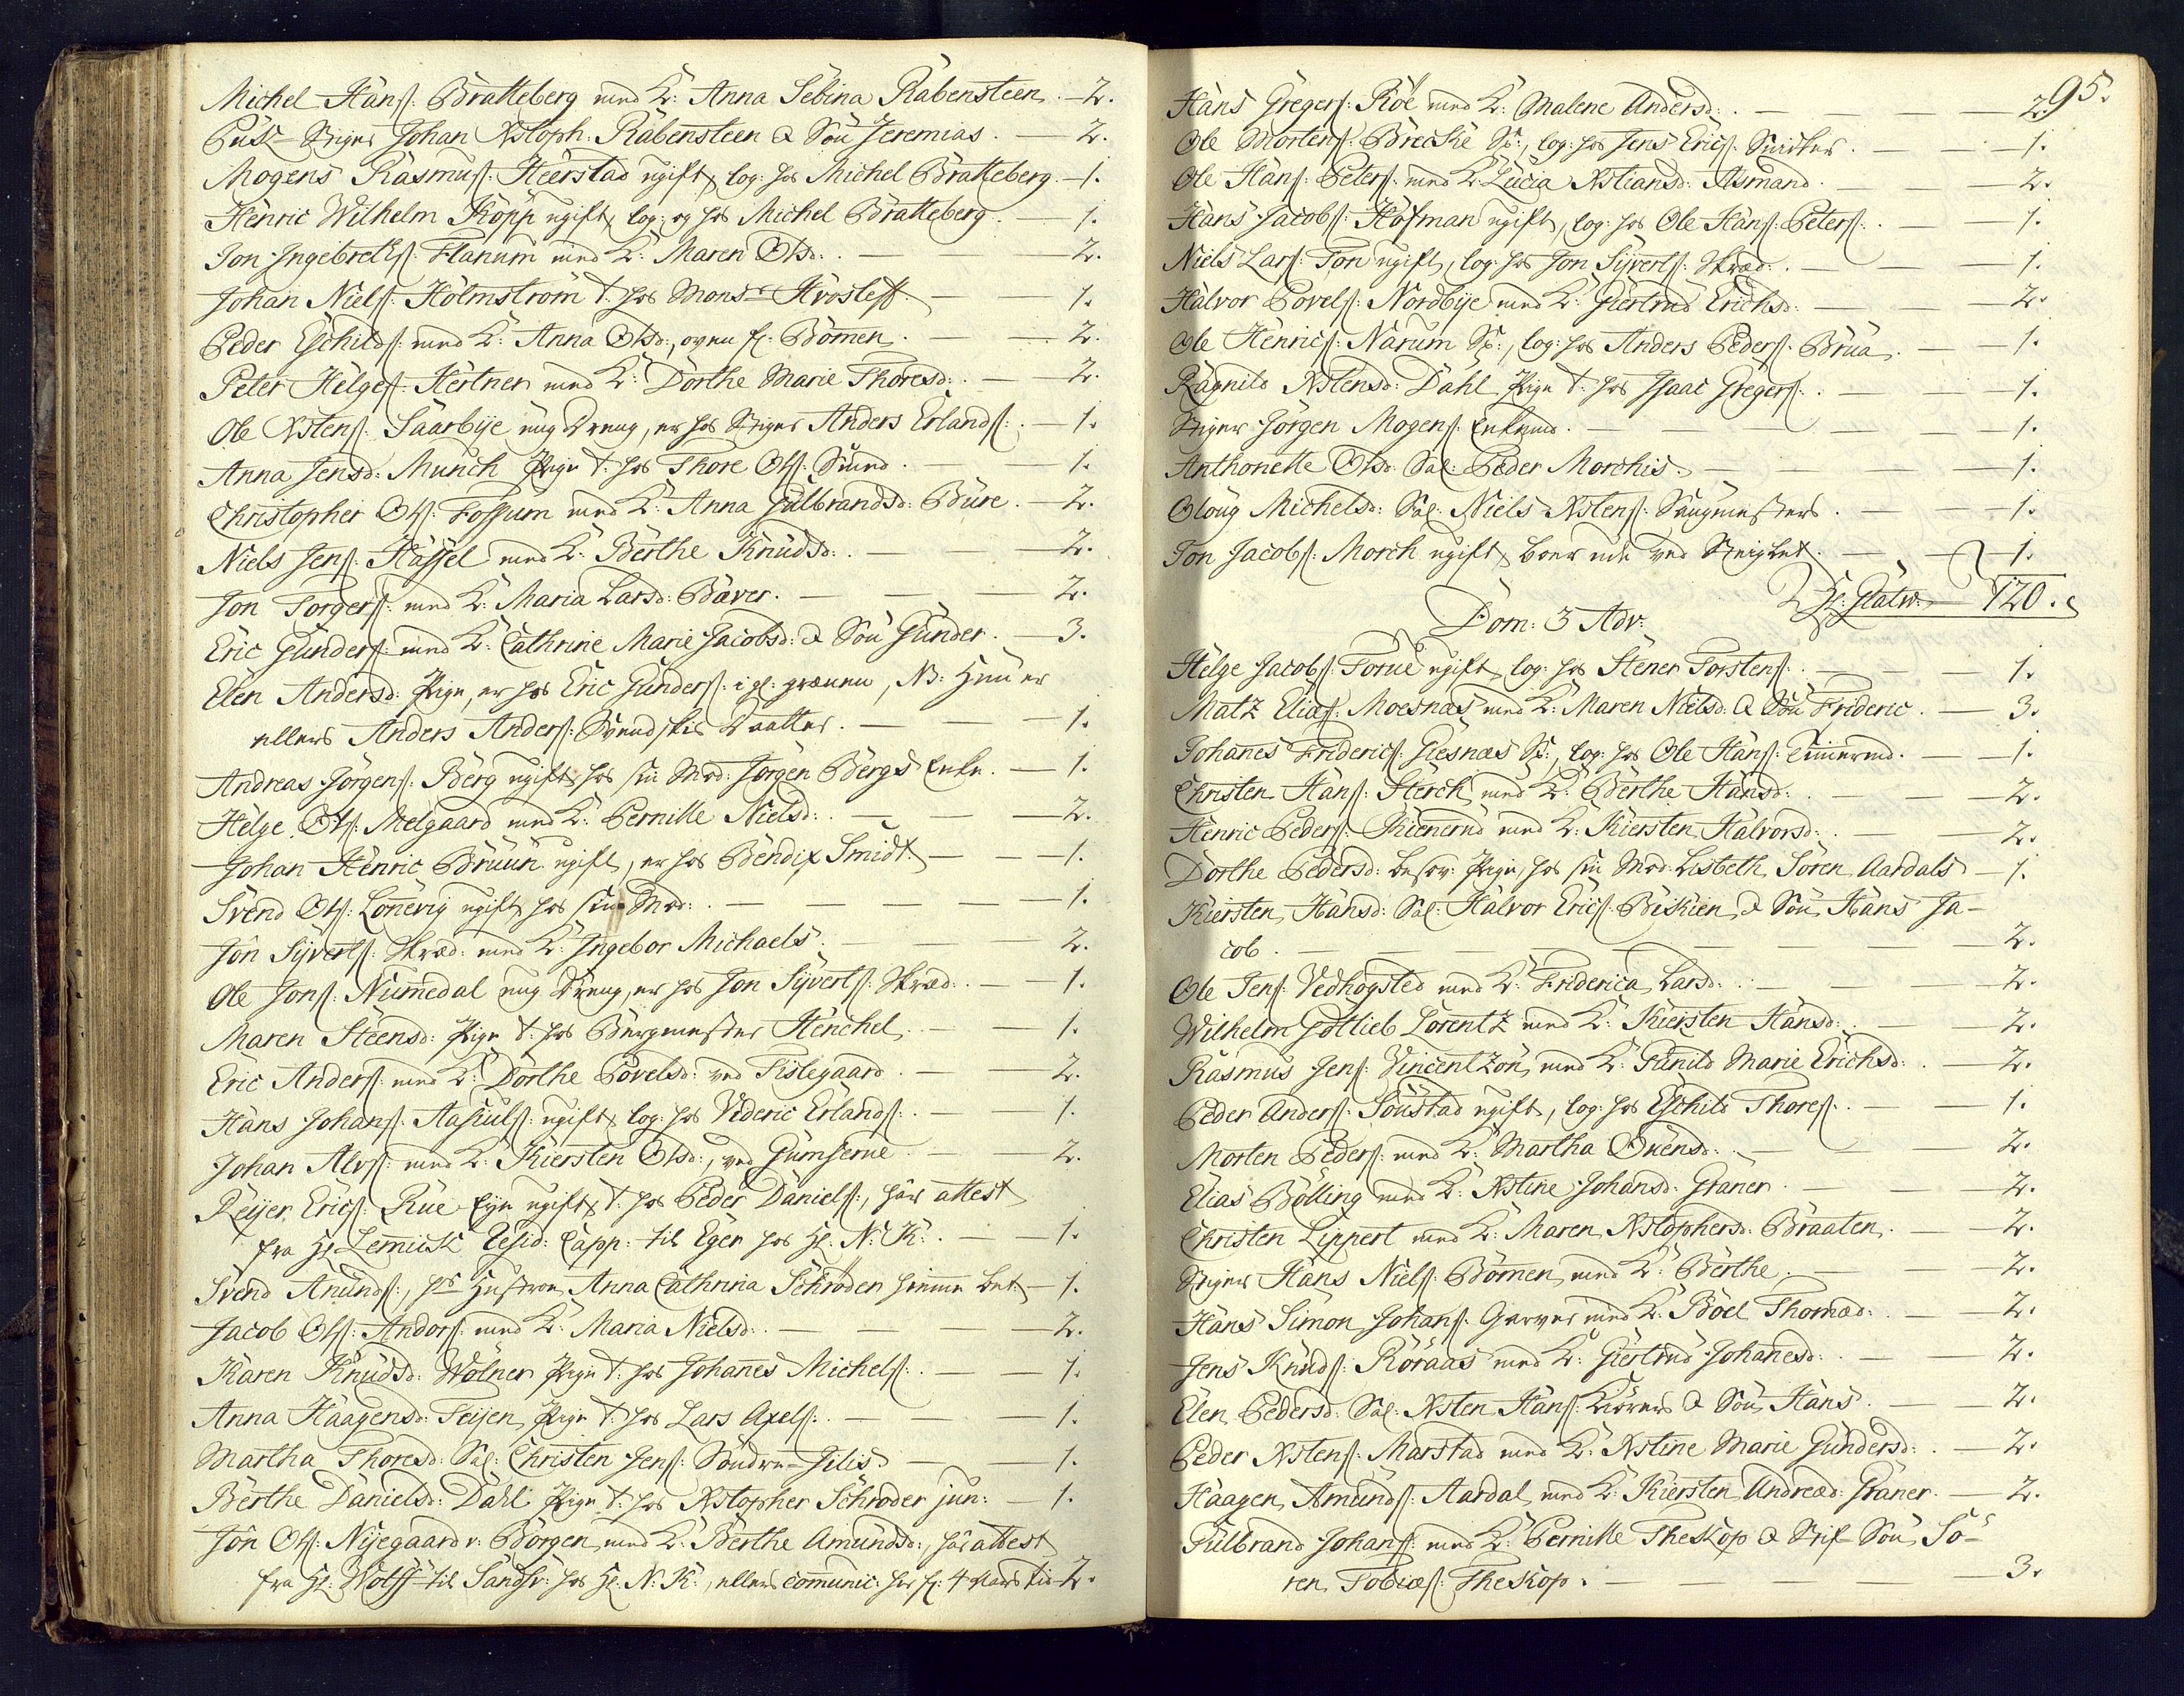 Michel Hans: Bratteberg med K: Anna Sebina Rabensteen. — 2.
Puk-Stiger Johan Xstoph: Rabensteen & Søn Jeremias. — 2.
Mogens Rasmus: Heerstad ugift, log: hos Michel Bratteberg. — 1.
Henric Wilhelm Kopp ugift, log: og hos Michel Bratteberg. — 1.
Jon Ingebreths: Flanum med K: Maren Olsd: — 2.
Johan Niels: Holmstrøm t: hos Monsr Hvosleff. — 1.
Peder Eschilds: med K: Anna Olsd:, oven f: Bommen. — 2.
Peter Helges: Hertner med K: Dorthe Marie Thoresd: — 2.
Ole Xstens: Saarbye ung Dreng, er hos Stiger Anders Erlands: — 1.
Anna Jensd: Munch Pige t: hos Thore Ols: Smed. — 1.
Christopher Ols: Fossum med K: Anna Gulbrandsd: Bure. — 2.
Niels Jens: Hassel med K: Berthe Knudsd: — 2.
Jon Torgers: med K: Maria Larsd: Baver. — 2.
Eric Gunders: med K: Cathrine Marie Jacobsd: & Søn Gunder. — 3.
Elen Andersd: Pige, er hos Eric Gunders: i gl: grænen, NB: Hun er
ellers Anders Anders: Svendskes Daatter. — 1.
Andreas Jørgens: Berg ugift, hos sin Mod: Jørgen Bergs Enke. — 1.
Helge Ols: Melgaard med K: Pernille Nielsd: — 2.
Johan Henric Bruun ugift, er hos Bendix Smidt. — 1.
Svend Ols: Lønevig ugift, hos sin Mod: — 1.
Jon Syverts: Skræd: med K: Ingebor Michaels. 2.
Ole Jons: Numedal ung Dreng, er hos Jon Syverts: Skræd: — 1.
Maren Steensd: Pige t: hos Burgemester Henchel. 1.
Eric Anders: med K: Dorthe Povelsd: ved Tislegaard. — 2.
Hans Johans: Aasiuls: ugift, log: hos Videric Erlands: — 1.
Johan Alvs: med K: Kiersten Olsd:, ved Gumserne. — 2.
Reyer Erics: Rue Eger ugift, t: hos Peder Daniels:, har attest
fra Hr Lemmick Resid: Capp: til Eger hos Hr: N: K: — 1.
Svend Amunds:, hs Hustroe Anna Cathrina Schrøder hiemme bet: — 1.
Jacob Ols: Andors: med K: Maria Nielsd: — 2.
Karen Knudsd: Wolner Pige t: hos Johanes Michels: — 1.
Anna Haagensd: Teijen Pige t: hos Lars Axels: — 1.
Martha Thoresd: Sal: Christen Jens: Søndre-Jilis. — 1.
Berthe Danielsd: Dahl Pige t: hos Xstopher Schrøder jun: — 1.
Jon Ols: Nyegaard v: Børgen, med K: Berthe Amundsd:, har attest
fra Hr: Wolff til Sandsv: hos Hr: N: K:, ellers communic: her f: 4 Aars tid — 2.
295.
Hans Gregers: Røe med K: Malene Andersd: — 2.
Ole Mortens: Brecke Sk:, log: hos Jens Erics: Snidker. — 1.
Ole Hans: Peters: med K: Lucia Xstiansd: Asmand. — 2.
Hans Jacobs: Hofman ugift, log: hos Ole Hans: Peters: — 1.
Niels Lars: Fon ugift, log: hos Jon Syverts: Skræd: — 1.
Halvor Povels: Nordbye med K: Giertrud Erichsd: — 2.
Ole Henrics: Narum Sk:, log: hos Anders Peders: Brua. — 1.
Ragnild Xstensd: Dahl Pige t: hos Isaac Gregers: — 1.
Stiger Jørgen Mogens: Enkemd. — 1.
Anthonette Olsd: Sal: Peder Morchis. — 1.
Oloug Michelsd: Sal: Niels Xstens: Saugmesters. — 1.
Jon Jacobs: Morch ugift, boer ude ved — 1.
120.
Dom: 3 Adv:
Helge Jacobs: Forue ugift, log: hos Stener Torstens: — 1.
Matz Elias: Moesnæs med K: Maren Nielsd: & Søn Frideric. — 3.
Johanes Friderics: Giesnæs Sk:, log: hos Ole Hans: Tømermd. — 1.
Christen Hans: Sterch med K: Berthe Hansd: — 2.
Henric Peders: Kienerud med K: Kiersten Halvorsd: — 2.
Dorthe Pedersd: besov: Pige, hos sin Mod: Lisbeth Søren Aardals — 1.
Kiersten Hansd: Sal: Halvor Erics: Bekien & Søn Hans Ja-
cob. — 2.
Ole Jens: Vedhogsted med K: Friderica Larsd: — 2.
Wilhelm Gotlieb Lorentz med K: Kiersten Hansd: — 2.
Rasmus Jens: Vincentzon med K: Gunild Marie Erichsd: — 2.
Peder Anders: Soustad ugift, log: hos Eschild Thores: — 1.
Morten Peders: med K: Martha Ovensd: — 2.
Elias Bolling med K: Xstine Johansd: Graner. — 2.
Christen Lippert med K: Maren Xstophersd: Braaten. — 2.
Stiger Hans Niels: Bommen med K: Berthe. — 2.
Hans Simon Johans: Garver med K: Boel Thomæd: — 2.
Jens Knuds: Røraas med K: Giertrud Johanesd: — 2.
Elen Pedersd: Sal: Xsten Hans: Kiørers & Søn Hans. — 2.
Peder Xstens: Marstad med K: Xstine Marie Gundersd: — 2.
Haagen Amunds: Aardal med K: Kiersten Andreæd: Graner. — 2.
Gulbrand Johans: med K: Pernille Theskop & Stif-Søn Sø-
ren Tobiæs: Theskop. — 3.